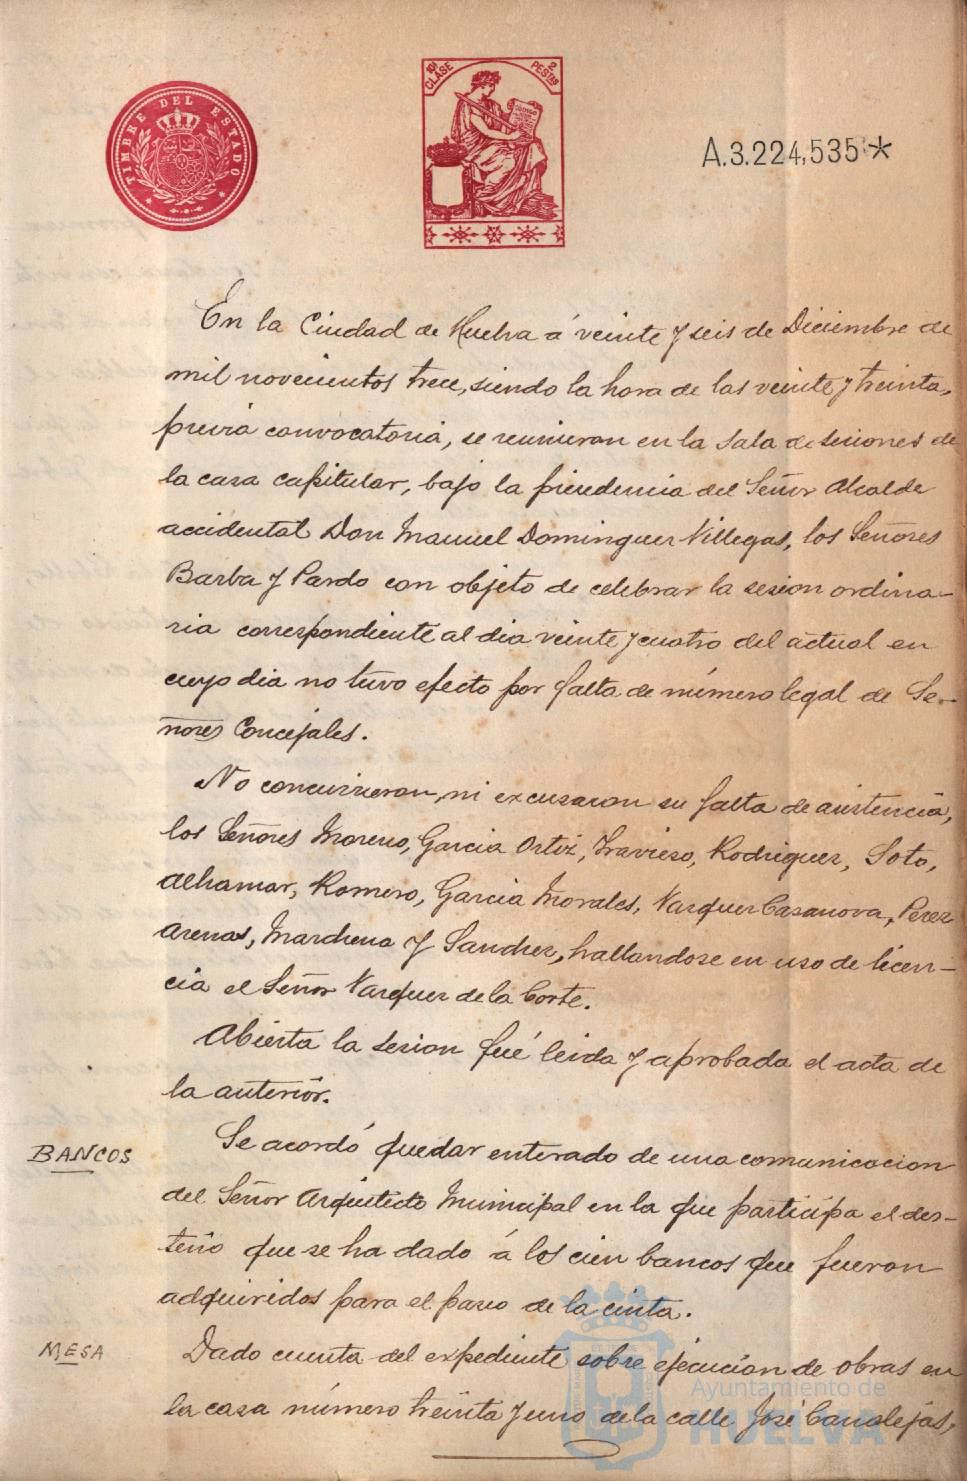 TIMBRE DEL ESTADO
10ª CLASE
2 PESTAS
A.3.224,535 *
En la Ciudad de Huelva á veinte y seis de Diciembre de
mil novecientos trece, siendo la hora de las veinte y treinta,
previa convocatoria, se reunieron en la Sala de sesiones de
la casa capitular, bajo la presidencia del Señor Alcalde
accidental Don Manuel Dominguez Villegas, los Señores
Barba y Pardo con objeto de celebrar la sesion ordina-
ria correspondiente al dia veinte y cuatro del actual en
cuyo dia no tuvo efecto por falta de número legal de Se-
ñores Concejales.
No concurrieron, ni excusaron su falta de asistencia,
los Señores Moreno, Garcia Ortiz, Travieso, Rodriguez, Soto,
Alhamar, Romero, Garcia Morales, Vazquez Casanova, Perez
Arenas, Marchena y Sanchez, hallandose en uso de licen-
cia el Señor Vazquez de la Corte.
Abierta la sesion fué leida y aprobada el acta de
la anterior.
BANCOS
Se acordó quedar enterado de una comunicacion
del Señor Arquitecto Municipal en la que participa el des-
tino que se ha dado á los cien bancos que fueron
adquiridos para el paseo de la cinta.
MESA
Dado cuenta del expediente sobre ejecucion de obras en
la casa número treinta y uno de la calle José Canalejas,
Ayuntamiento de
HUELVA